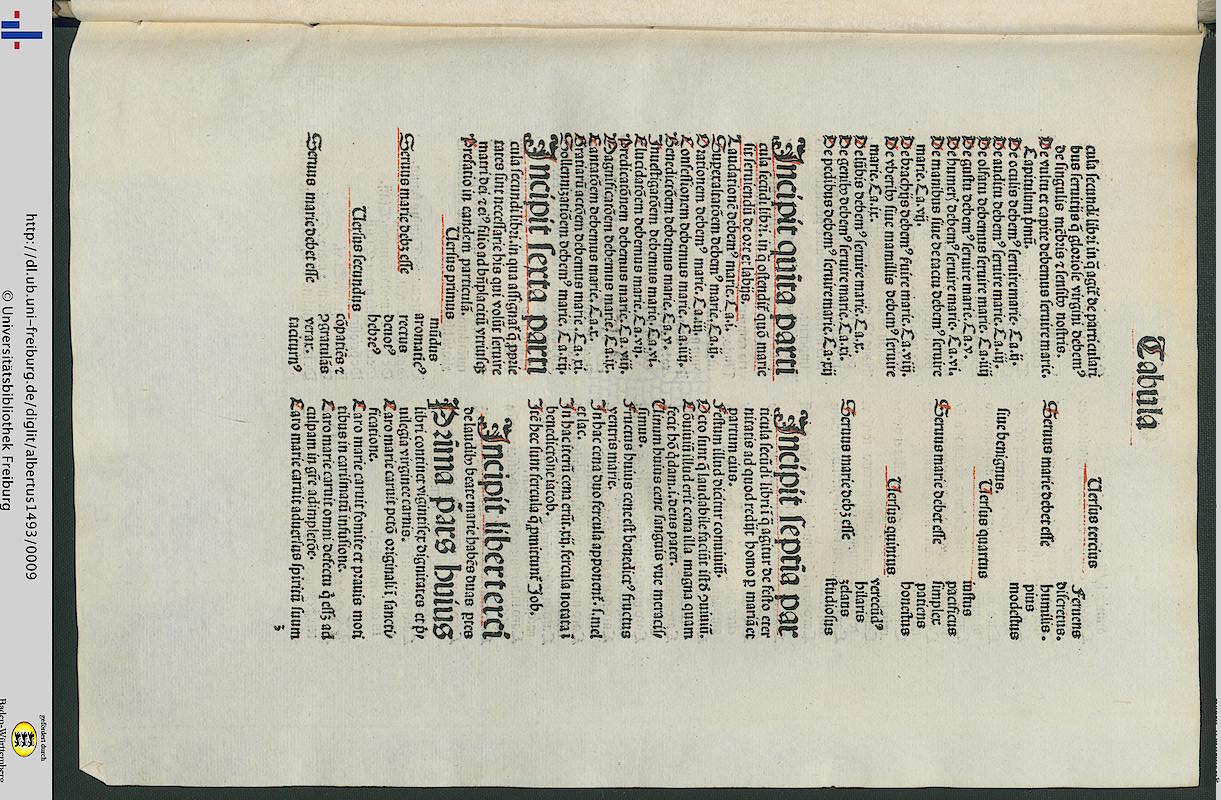 Tabula
cula secundi libri in q̃ agit̃ de particulari
bus seruitijs q̃ gloriose virgini debemꝰ
de singulis mẽbris ⁊ sensibꝰ nostris.
De vultu et capite debemus seruire marie.
Capitulum pͥmũ.
De oculis debemꝰ seruire marie. Ca. ij.
De auditu debemꝰ seruire marie. Ca. iij.
De olfatu debemus seruire marie. Ca. iiij
De gustu debemꝰ seruire marie. Ca. v.
De humeris debemꝰ seruire marie. Ca. vi.
De manibus siue de tactu debemꝰ seruire
marie. Ca. vij.
De brachijs debemꝰ s̃uire marie. Ca. viij.
De vberibꝰ siue mamillis debemꝰ seruire
marie. Ca. ix.
De tibijs debemꝰ seruire marie. Ca. x.
De genibꝰ debemꝰ seruire marie. Ca. xi.
De pedibus debemꝰ seruire marie. Ca. xij
Incipit quĩta parti
cula secũdi libri. in q̃ ostendit̃ quõ marie
sit seruiendũ de ore et labijs.
Laudationẽ debemꝰ marie. Ca. i.
Superalatõem debemꝰ marie. Ca. ij.
Orationem debemꝰ marie. Ca. iij.
Confessionem debemus marie. Ca. iiij.
Benedictõem debemus marie Ca. v.
Inuestigatõem debemus marie. Ca. vi.
Elucidatõem debemus marie. Ca. vij.
Predicatõnem debemus marie. Ca. viij.
Magnificatõem debemus marie. Ca. ix.
Cantatõem debemus marie. Ca. x.
Gratiarũ actõem debemus marie Ca. xi.
Solemnizatiõem debemꝰ marie. Ca. xij.
Incipit sexta parti
cula secundi libri. in qua assignat̃ q̃ ꝓprie
tates sint necessarie his qui volũt seruire
matri dei ⁊ eiꝰ filio ad bn̄placitũ vtriusqꝫ
Prefatio in eandem particulã.
Uersus primus
mũdus
aromaticꝰ
Seruus marie debꝫ esse rectus
deuotꝰ
hebreꝰ
Uersus secundus
cõpatiẽs ⁊
ꝯgratulãs
Seruus marie debet esse verax.
taciturnꝰ
Uersus tercius
Feruens
discretus.
Seruus marie debet esse humilis.
pius
modestus
siue benignus.
Uersus quartus
iustus
pacificus
Seruus marie debet esse simplex
patiens
honestus
Uersus quintus
verecũdꝰ
hilaris
Seruus marie debꝫ esse zelans
studiosus
Incipit septĩa par
ticula secũdi libri ĩ q̃ agitur de festo eter
nitatis ad quod redijt homo ꝑ mariã et
partum eius.
Festum illud dicitur conuiuiũ.
Octo sunt q̃ laudabile faciũt istđ ꝯuiuiũ.
Cõuiuiũ illud erit cena illa magna quam
fecit hõ q̃dam .i. deus pater.
Uinum huius cene sanguis vue meracis
simus.
Fructus huius cene est benedictꝰ fructus
ventris marie.
In hac cena duo fercula apponent̃. s. mel
et lac.
In hac iterũ cena erũt. xij. fercula notata ĩ
benedictiõne iacob.
Itẽ hec sunt fercula q̃ ꝓmittunt̃ Job.
Incipit liber terci
de laudibꝰ beate marie habẽs duas ꝑtes
Prima ꝑars huius
libri continet viginti sex dignitates et pͥ
uilegia virginee carnis.
Caro marie caruit pctõ originali ĩ sancti
ficatione.
Caro marie caruit fomite et prauis moti
ribus in carismatũ infusione.
Caro marie caruit omni defectu q̃ est ad
culpam in gr̃e adimpletõe.
Caro marie caruit aduersus spiritũ suum
3
http://dl.ub.uni-freiburg.de/diglit/albertus1493/0009
© Universitätsbibliothek Freiburg
gefördert durch
Baden-Württemberg